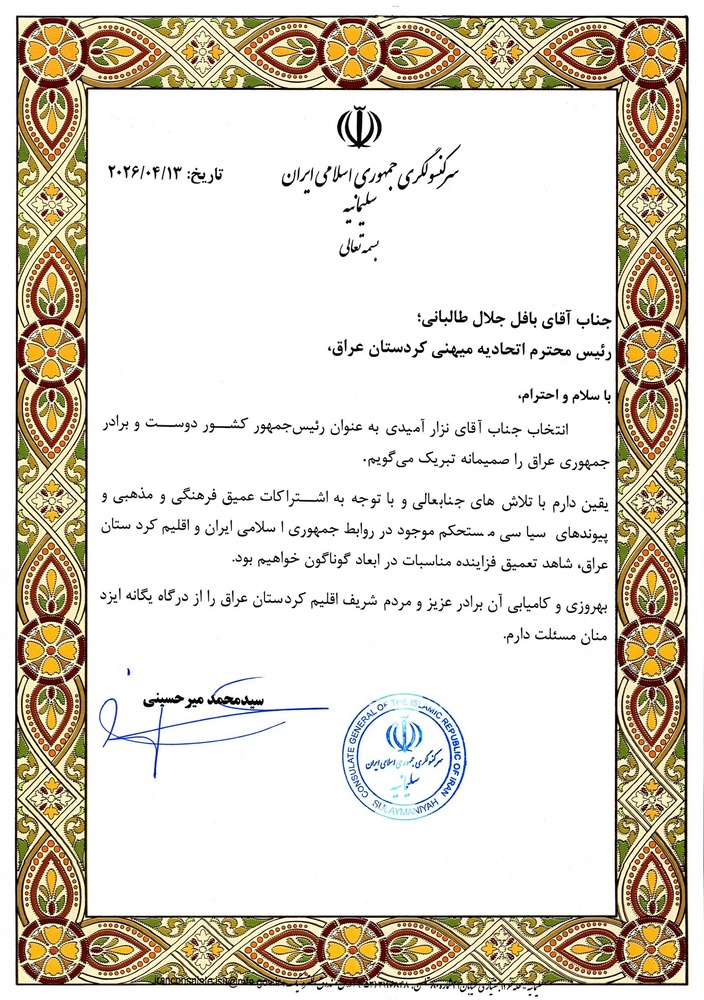 سرکنسولگری جمهوری اسلامی ایران
سلیمانیه
تاریخ: ۲۰۲۶/۰۴/۱۳
بسمه تعالی
جناب آقای بافل جلال طالبانی؛
رئیس محترم اتحادیه میهنی کردستان عراق،
با سلام و احترام،
انتخاب جناب آقای نزار آمیدی به عنوان رئیس‌جمهور کشور دوست و برادر
جمهوری عراق را صمیمانه تبریک می‌گویم.
یقین دارم با تلاش های جنابعالی و با توجه به اشتراکات عمیق فرهنگی و مذهبی و
پیوندهای سیا سی م ستحکم موجود در روابط جمهوری ا سلامی ایران و اقلیم کرد ستان
عراق، شاهد تعمیق فزاینده مناسبات در ابعاد گوناگون خواهیم بود.
بهروزی و کامیابی آن برادر عزیز و مردم شریف اقلیم کردستان عراق را از درگاه یگانه ایزد
منان مسئلت دارم.
سیدمحمد میرحسینی
CONSULATE GENERAL OF THE ISLAMIC REPUBLIC OF IRAN
سرکنسولگری جمهوری اسلامی ایران
سلیمانیه
SULAYMANIYAH